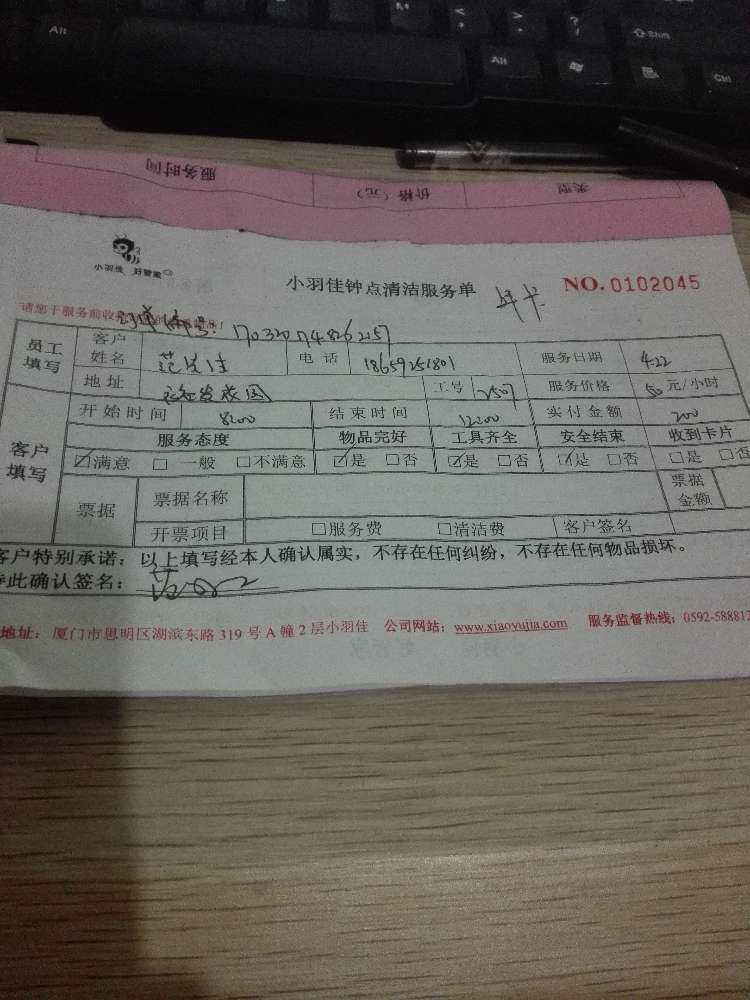 Alt
Shift
Alt
Ctrl
服务时间
价格（元）
类型
小羽佳 好管家
小羽佳钟点清洁服务单
年卡
NO. 0102045
请您于服务前收
订单编号: 170320748262157
员工填写
客户姓名
范先生
电话
18659251801
服务日期
4.22
地址
工号
2507
服务价格
50 元/小时
客户填写
开始时间
8:00
结束时间
12:00
实付金额
200
服务态度
物品完好
工具齐全
安全结束
收到卡片
☑满意 □一般 □不满意
☑是 □否
☑是 □否
☑是 □否
□是 □否
票据
票据名称
票据金额
开票项目
□服务费
□清洁费
客户签名
客户特别承诺：以上填写经本人确认属实，不存在任何纠纷，不存在任何物品损坏。
此确认签名：
地址：厦门市思明区湖滨东路 319 号 A 幢 2 层小羽佳 公司网站：www.xiaoyujia.com 服务监督热线：0592-588812